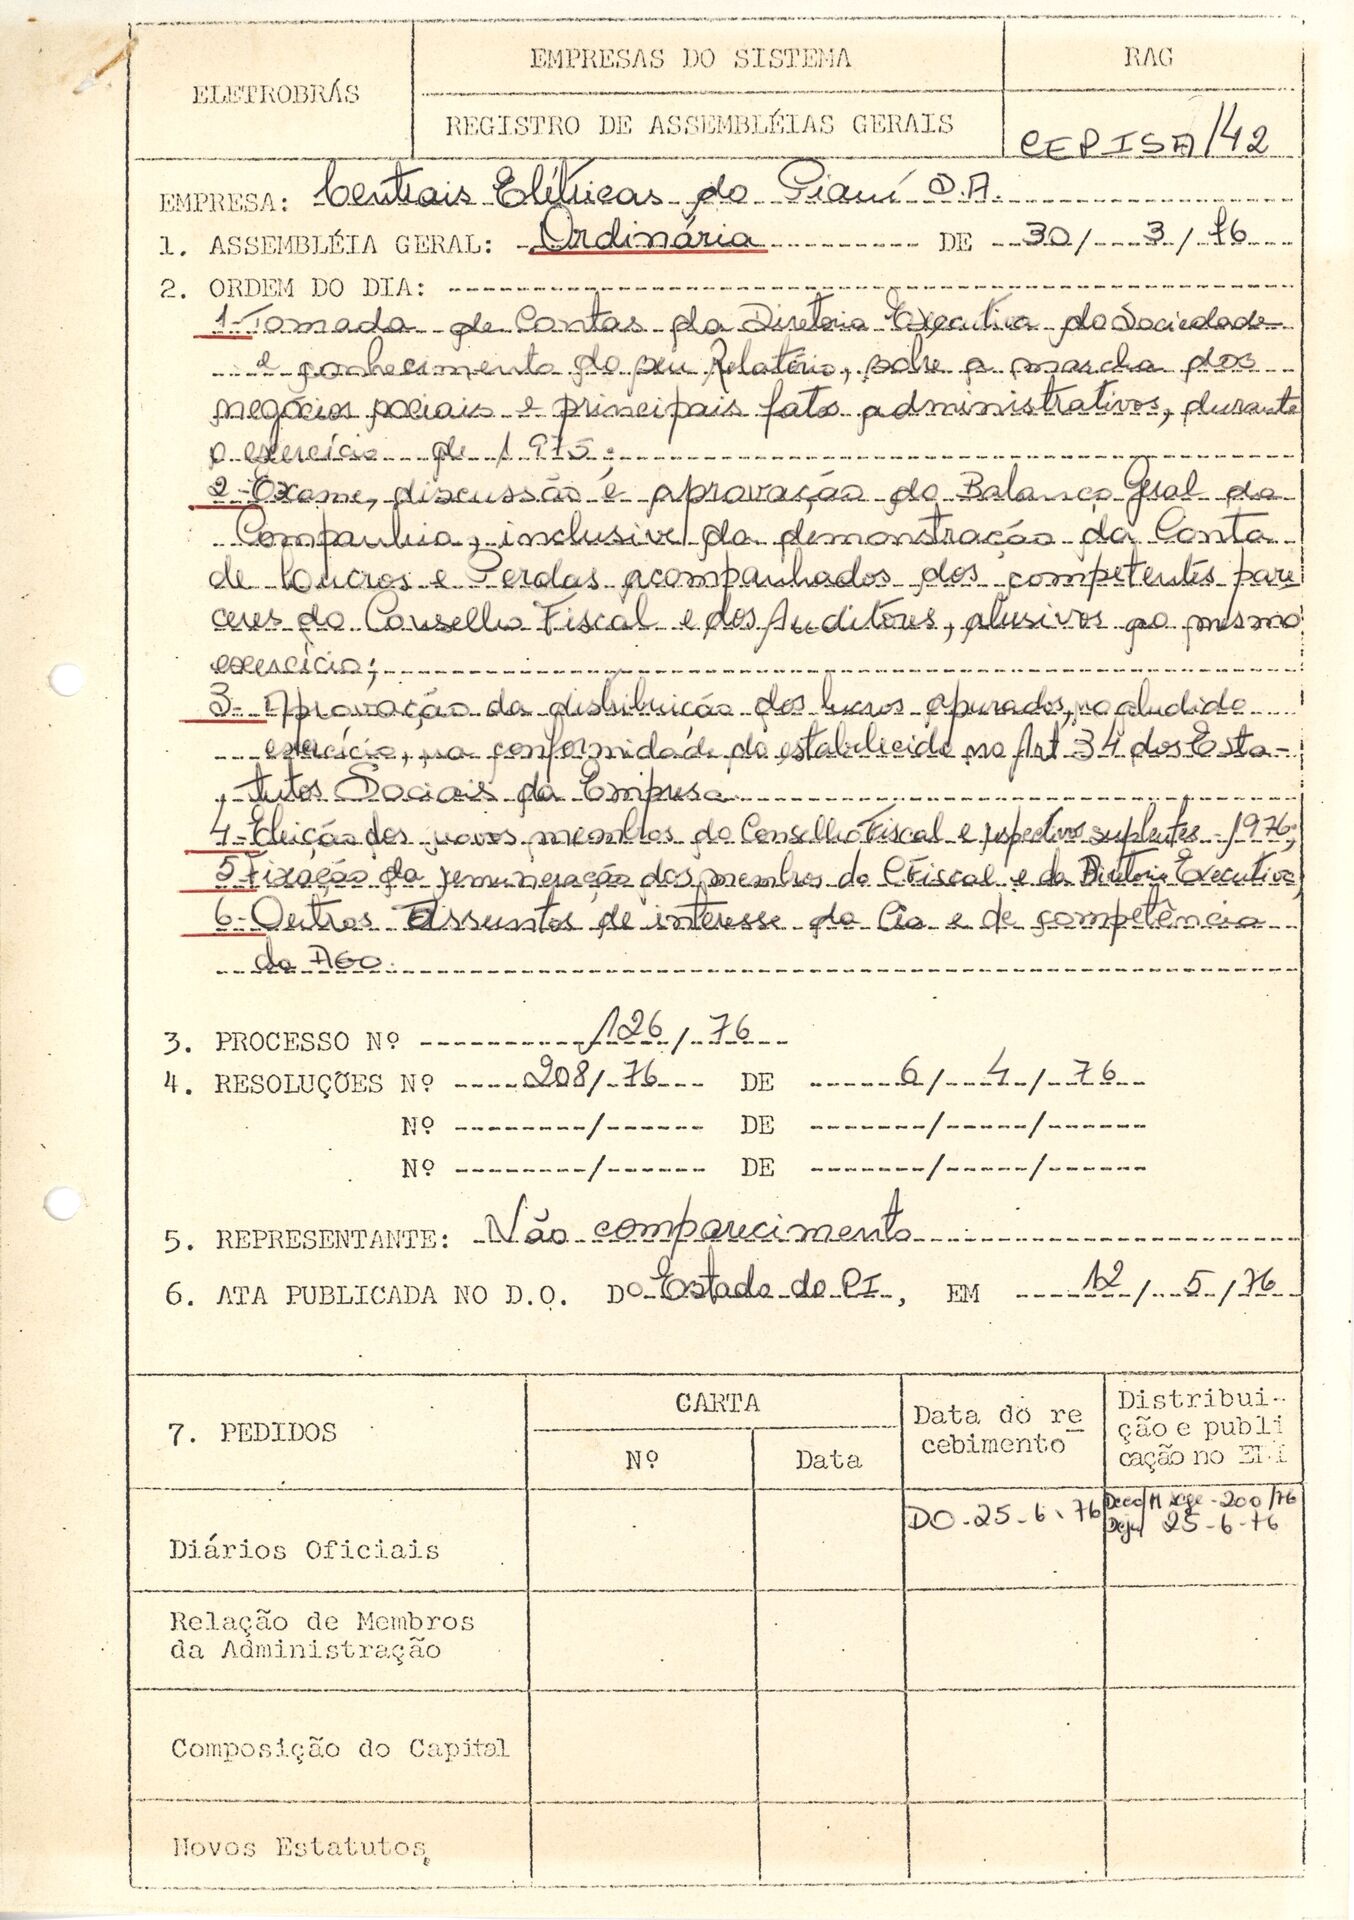 ELETROBRÁS
EMPRESAS DO SISTEMA
REGISTRO DE ASSEMBLÉIAS GERAIS
RAG
CEPISA/42
EMPRESA: Centrais Elétricas do Piauí S.A.
1. ASSEMBLÉIA GERAL: Ordinária DE 30/ 3 / 76
2. ORDEM DO DIA:
1-Tomada de Contas da Diretoria Executiva da Sociedade
e conhecimento do seu Relatório, sobre a marcha dos
negócios sociais e principais fatos administrativos, durante
o exercício de 1975;
2-Exame, discussão e aprovação do Balanço Geral da
Companhia, inclusive da demonstração da Conta
de Lucros e Perdas acompanhados dos competentes pare
ceres do Conselho Fiscal e dos Auditores, alusivos ao mesmo
exercício;
3- Aprovação da distribuição dos lucros apurados, no aludido
exercício, na conformidade do estabelecido no Art 34 dos Esta-
tutos Sociais da Empresa
4-Eleição dos novos membros do Conselho Fiscal e respectivos suplentes - 1976;
5 Fixação da remuneração dos membros do C Fiscal e da Diretoria Executiva;
6-Outros Assuntos de interesse da Cia e de competência
da AGO.
3. PROCESSO Nº 126 / 76
4. RESOLUÇÕES Nº 208/ 76 DE 6 / 4 / 76
Nº / DE / /
Nº / DE / /
5. REPRESENTANTE: Não comparecimento
6. ATA PUBLICADA NO D.O. DO Estado do PI, EM 12 / 5 / 76
7. PEDIDOS
CARTA
Nº
Data
Data do re
cebimento
Distribui-
ção e publi
cação no
DO-25-6-76
200/76
25-6-76
Diários Oficiais
Relação de Membros
da Administração
Composição do Capital
Novos Estatutos